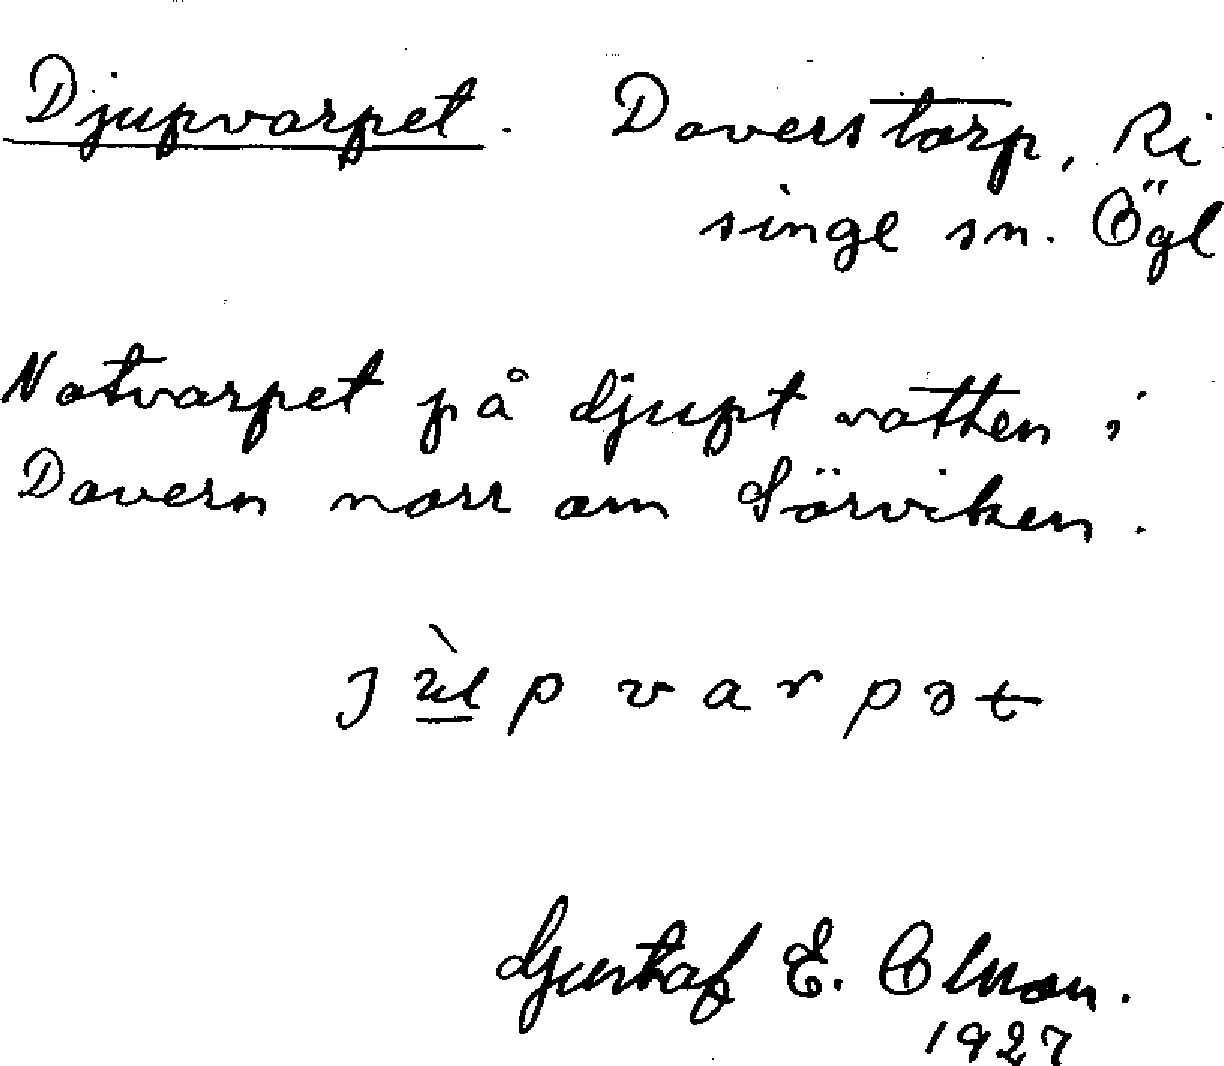 Djupvarpet. Doverstorp, Ri
singe sn. Ögl
Notvarpet på djupt vatten i
Dovern norr om Sörviken.
Gustaf E. Olsson.
1927